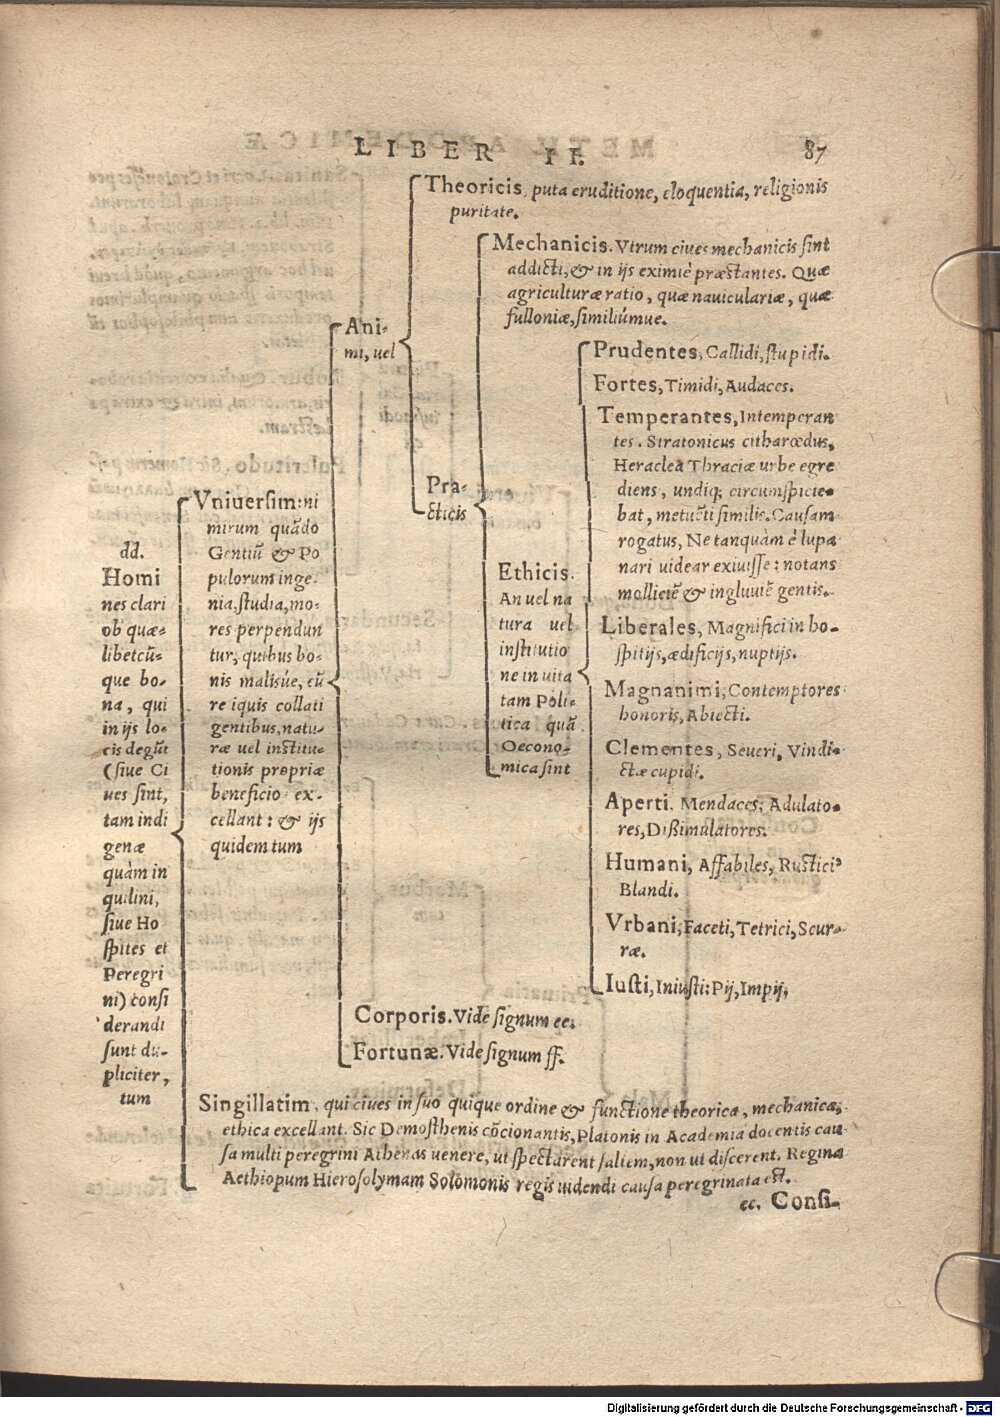 LIBER II.
87
dd.
Homi
nes clari
ob quæ-
libetcũ-
que bo-
na, qui
in ijs lo-
cis degũt
(siue Ci
ues sint,
tam indi
genæ
quàm in
quilini,
siue Ho
spites et
Peregri
ni) consi
derandi
sunt du-
pliciter,
tum
Vniuersim: ni
mirum quãdo
Gentiũ & Po
pulorum inge-
nia, studia, mo-
res perpendun
tur, quibus bo-
nis malisúe, cũ
re iquis collati
gentibus, natu-
ræ uel institu-
tionis propriæ
beneficio ex-
cellant: & ijs
quidem tum
Ani-
mi, uel
Theoricis, puta eruditione, eloquentia, religionis
puritate.
Pra-
cticis
Mechanicis. Vtrum ciues mechanicis sint
addicti, & in ijs eximiè præstantes. Quæ
agriculturæ ratio, quæ nauiculariæ, quæ
fulloniæ, similiúmue.
Ethicis.
An uel na
tura uel
institutio
ne in uita
tam Poli-
tica quã
Oecono-
mica sint
Prudentes, Callidi, stupidi.
Fortes, Timidi, Audaces.
Temperantes, Intemperan
tes. Stratonicus citharœdus,
Heraclea Thraciæ urbe egre
diens, undiq; circumspicie-
bat, metuẽti similis. Causam
rogatus, Ne tanquàm è lupa
nari uidear exiuisse: notans
molliciẽ & ingluuiẽ gentis.
Liberales, Magnifici in ho-
spitijs, ædificijs, nuptijs.
Magnanimi, Contemptores
honoris, Abiecti.
Clementes, Seueri, Vindi-
ctæ cupidi.
Aperti. Mendaces, Adulato-
res, Dißimulatores.
Humani, Affabiles, Rustici,
Blandi.
Vrbani, Faceti, Tetrici, Scur-
ræ.
Iusti, Iniusti: Pij, Impij,
Corporis. Vide signum ee.
Fortunæ. Vide signum ff.
Singillatim, qui ciues in suo quique ordine & functione theorica, mechanica,
ethica excellant. Sic Demosthenis cõcionantis, Platonis in Academia docentis cau
sa multi peregrini Athenas uenere, ut spectarent saltem, non ut discerent. Regina
Aethiopum Hierosolymam Solomonis regis uidendi causa peregrinata est.
ee. Consi-
Digitalisierung gefördert durch die Deutsche Forschungsgemeinschaft - DFG